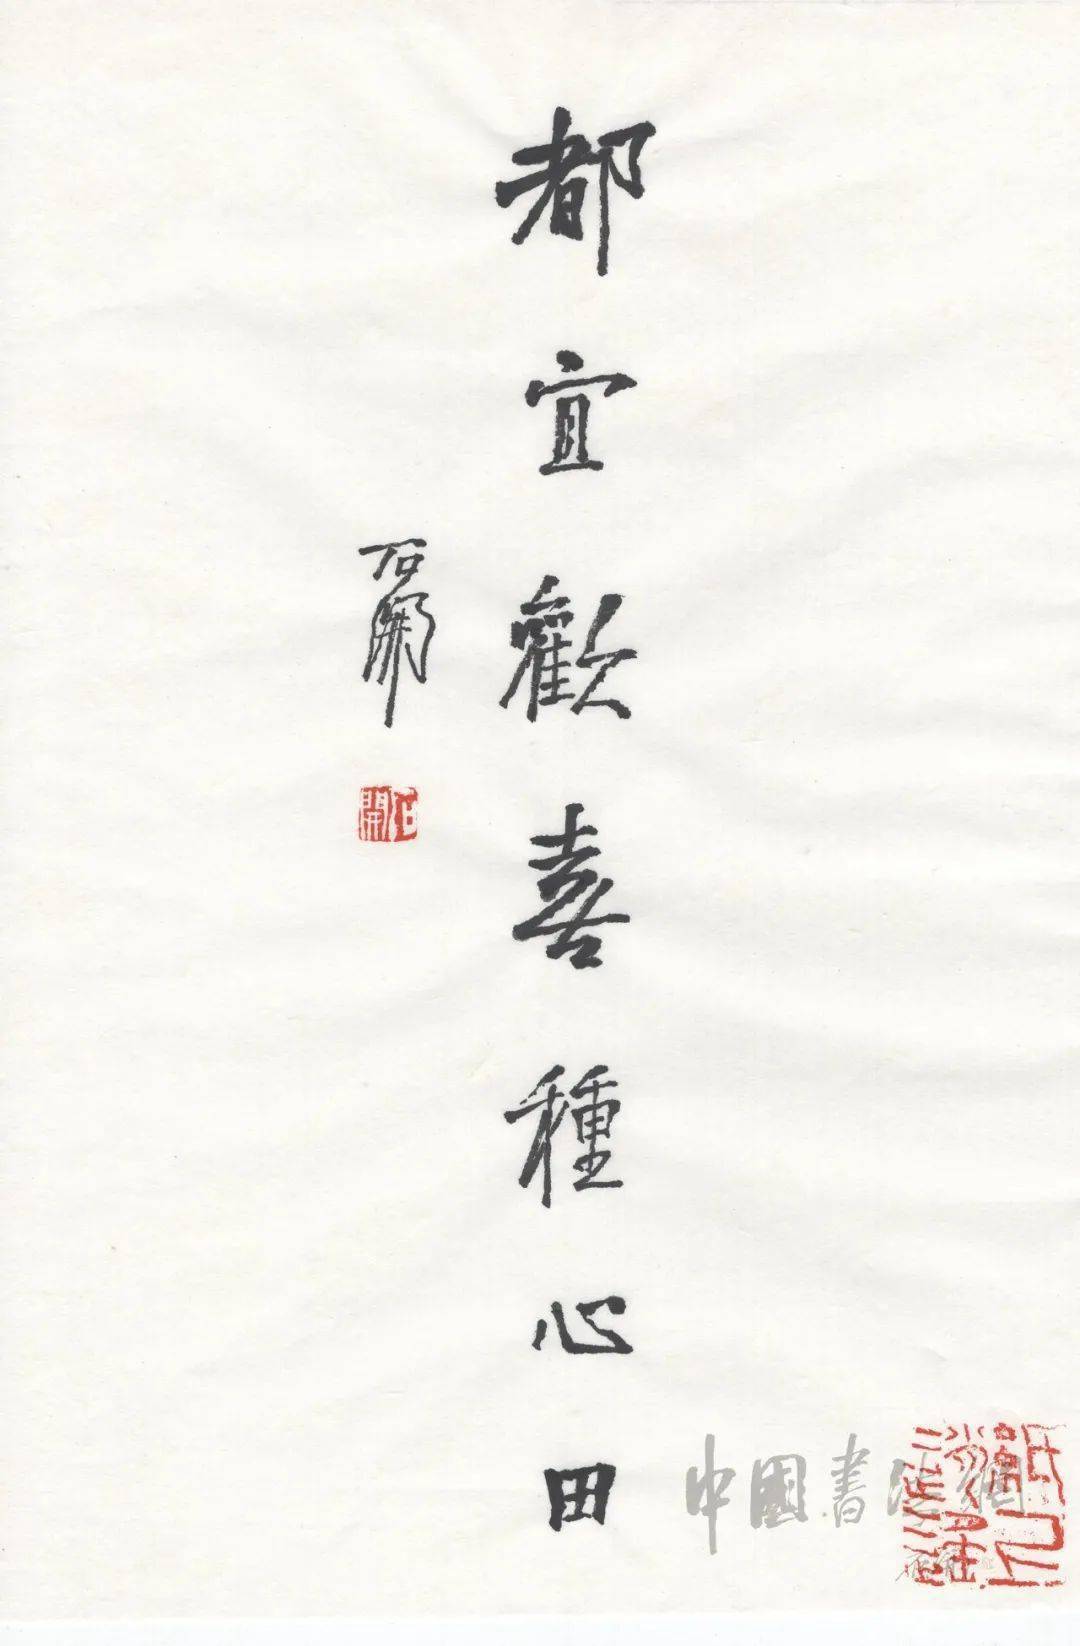 都宜歡喜種心田
石開
石開
中國書法網